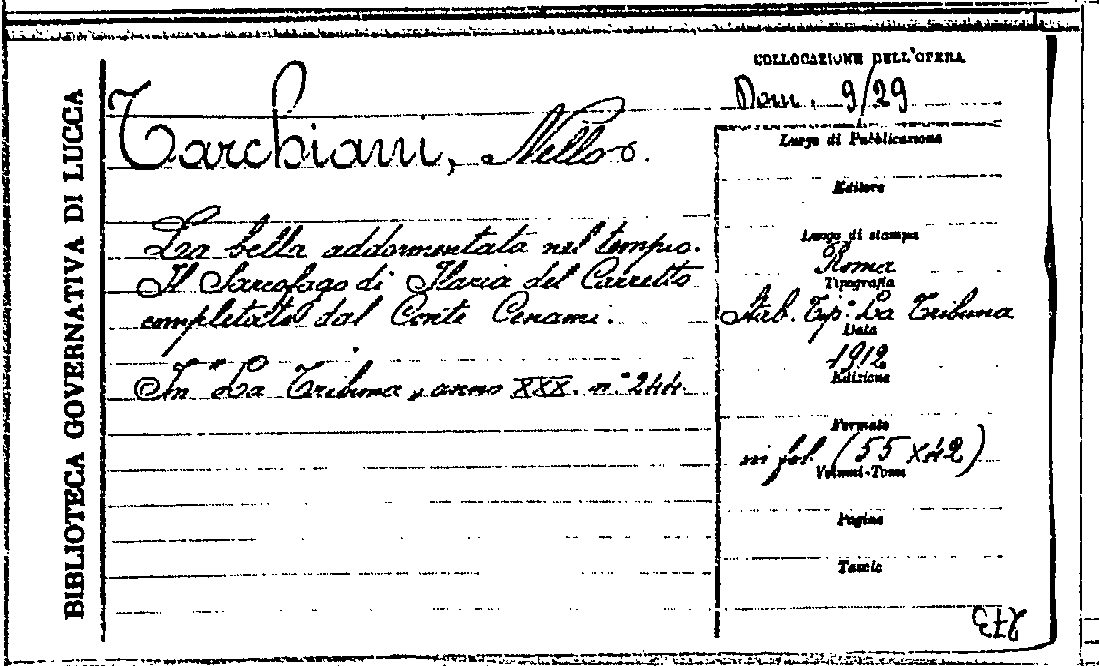 BIBLIOTECA GOVERNATIVA DI LUCCA
Tarchiani, Nello.
La bella addormentata nel tempio.
Il Sarcofago di Ilaria del Carretto
completato dal Conte Cenami.
In "La Tribuna", anno XXX. n.° 244.
COLLOCAZIONE DELL'OPERA
9/29
Luogo di Pubblicazione
Editore
Luogo di stampa
Roma
Tipografia
Stab. Tip.° La Tribuna
Data
1912
Edizione
Formato
in fol. (55 x 42)
Volumi-Tomi
Pagine
Tavole
273